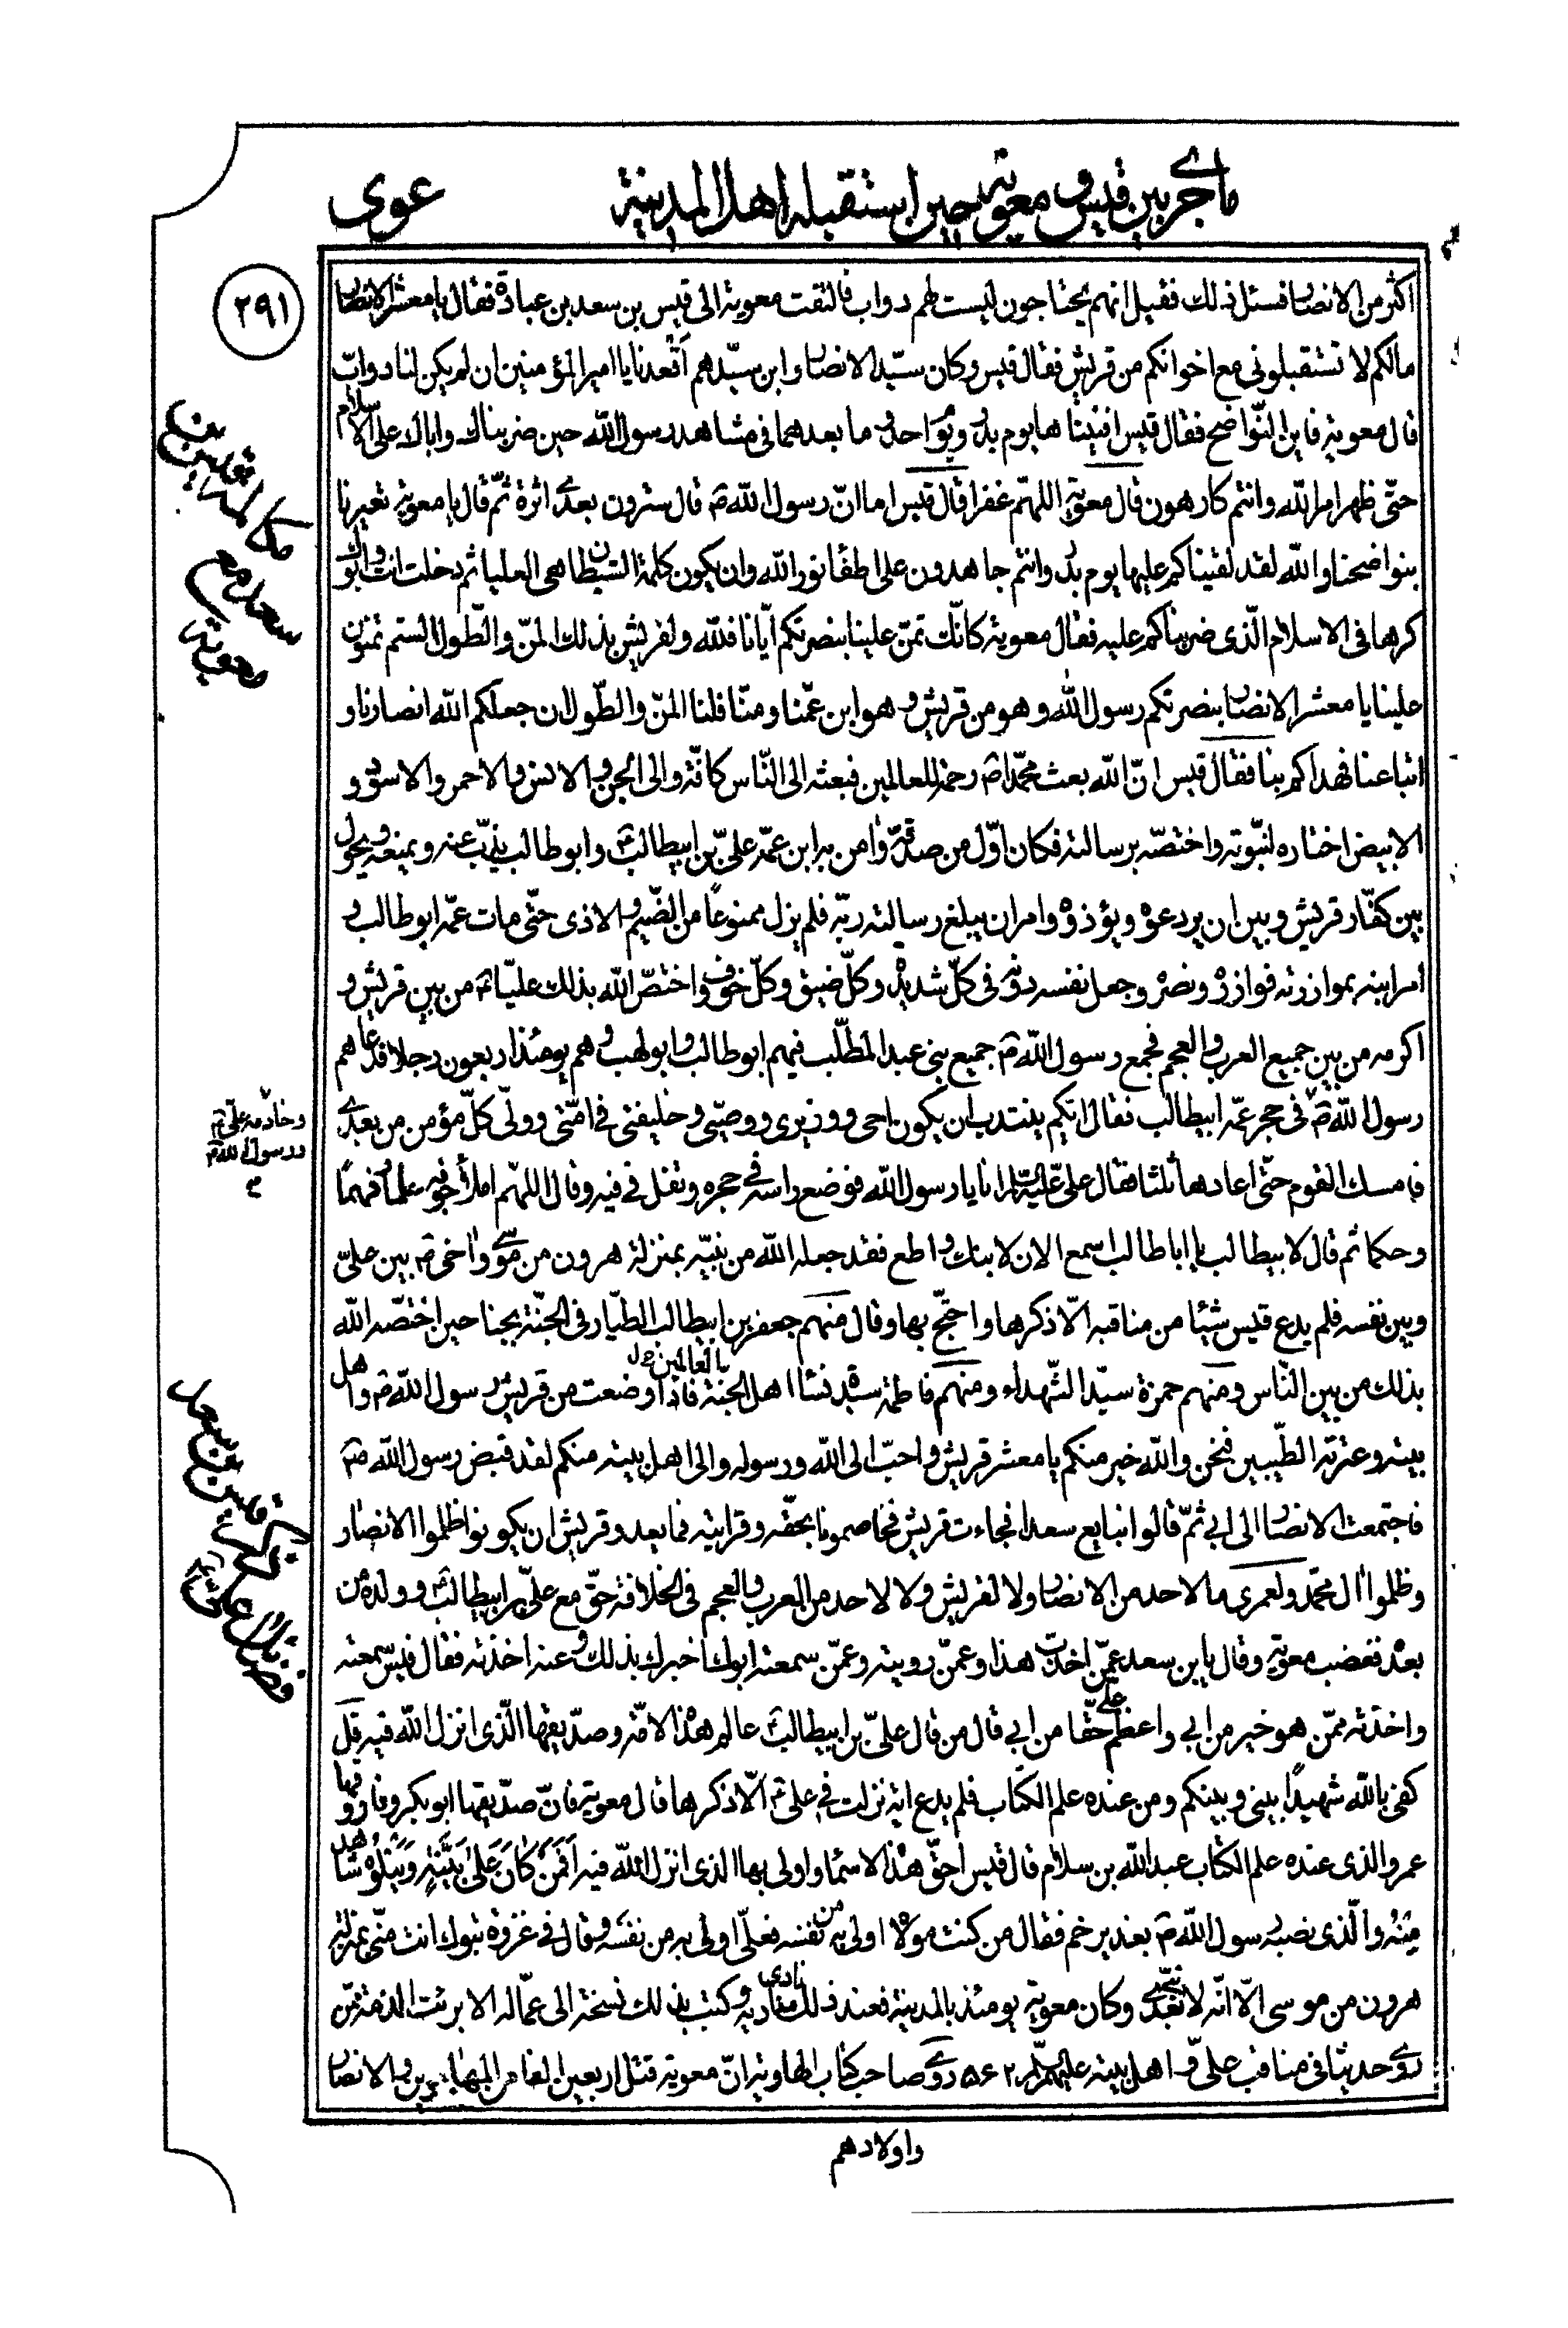 ما جرى بين قيس و معوية حين استقبله اهل المدينة
عوى
٢٩١
اكثر من الانصار فسئل ذلك فقيل انهم يحتاجون ليست لهم دواب فالتفت معوية الى قيس بن سعد بن عبادة فقال يا معشر الانصار
مالكم لا تستقبلونى مع اخوانكم من قريش فقال قيس وكان سيّد الانصار وابن سيّدهم اقعدنا يا امير المؤمنين ان لم يكن لنا دوابّ
قال معوية فاين النّواضح فقال قيس افنيناها يوم بدر ويوم احد وما بعدهما فى مشاهد رسول الله حين ضربناك واباك على الاسلام
حتّى ظهر امر الله وانتم كارهون قال معوية اللهمّ غفرا قال قيس اما انّ رسول الله ص قال سترون بعدى اثرة ثمّ قال يا معوية تعيرنا
بنواضحنا والله لقد لقيناكم عليها يوم بدر وانتم جاهدون على اطفاء نور الله وان يكون كلمة الشيطان هى العليا ثم دخلت انت وابوك
كرها فى الاسلام الّذى ضربناكم عليه فقال معوية كانّك تمنّ علينا بنصرتكم ايّانا فلله ولقريش بذلك المنّ والطّول الستم تمنون
علينا يا معشر الانصار بنصرتكم رسول الله وهو من قريش وهو ابن عمّنا ومنّا فلنا المنّ والطّول ان جعلكم الله انصارنا و
اتباعنا فهداكم بنا فقال قيس انّ الله بعث محمّدا ص رحمة للعالمين فبعثه الى النّاس كافّة والى الجن والانس والاحمر والاسود و
الابيض اختاره لنبّوته واختصّه برسالته فكان اوّل من صدقه وامن به ابن عمّه علىّ بن ابيطالب ع وابو طالب يذبّ عنه ويمنعه ويحول
بين كفّار قريش وبين ان يردعوه ويؤذوه وامر ان يبلغ رسالته ربّه فلم يزل ممنوعا من الضّيم والاذى حتّى مات عمّه ابو طالب و
امر ابنه بموازرته فوازره ونصره وجعل نفسه دونه فى كلّ شديد وكلّ ضيق وكلّ خوف واختصّ الله بذلك عليّا ع من بين قريش و
اكرمه من بين جميع العرب والعجم فجمع رسول الله ص جميع بنى عبد المطّلب فيهم ابو طالب وابو لهب وهم يومئذ اربعون رجلا فدعاهم
رسول الله ص فى حجر عمّه ابيطالب فقال ايّكم ينتدب ان يكون اخى ووزيرى ووصيّى وخليفتى فى امّتى وولّى كلّ مؤمن من بعدى
وخادمه علىّ ع
ورسول الله ص
فامسك القوم حتّى اعادها ثلثا فقال علىّ عليه السلام انا يا رسول الله فوضع راسه فى حجره وتفل فى فيه وقال اللهمّ املأ جوفه علما وفهما
وحكما ثم قال لابيطالب يا اباطالب اسمع الان لابنك واطع فقد جعله الله من نبيّه بمنزلة هرون من موسى واخى ص بين علىّ
وبين نفسه فلم يدع قيس شيئا من مناقبه الّا ذكرها واحتجّ بها وقال منهم جعفر بن ابيطالب الطيّار فى الجنّة بجناحين اختصّه الله
بذلك من بين النّاس ومنهم حمزة سيّد الشّهداء ومنهم فاطمة سيّدة نساء اهل الجنة فاذا وضعت من قريش رسول الله ص واهل
بيته وعترته الطّيبين فنحن والله خير منكم يا معشر قريش واحبّ الى الله ورسوله والى اهل بيته منكم لقد قبض رسول الله ص
فاجتمعت الانصار الى ابى ثمّ قالوا نبايع سعدا فجاءت قريش فخاصمونا بحقّه وقرابته فما يعدو قريش ان يكونوا ظلموا الانصار
وظلموا ال محمّد ولعمرى ما لاحد من الانصار ولا لقريش ولا لاحد من العرب والعجم فى الخلافة حقّ مع علىّ بن ابيطالب ع وولده من
بعده فغضب معوية وقال يا بن سعد عمّن اخذت هذا وعمّن رويته وعمّن سمعته ابوك اخبرك بذلك وعنه اخذته فقال قيس سمعته
واخذته ممّن هو خير من ابى واعظم علىّ حقّا من ابى قال من قال علىّ بن ابيطالب ع عالم هذه الامّة وصدّيقها الّذى انزل الله فيه قل
كفى بالله شهيدا بينى وبينكم ومن عنده علم الكتاب فلم يدع اية نزلت فى علىّ ع الّا ذكرها قال معوية فانّ صدّيقها ابو بكر وفاروقها
عمر والذى عنده علم الكتاب عبد الله بن سلام قال قيس احقّ هذه الاسماء واولى بها الذى انزل الله فيه اَفَمَنْ كانَ عَلى بَيِّنَةٍ وَيَتْلُوهُ شاهد
مِنْهُ والّذى نصبه رسول الله ص بغدير خم فقال من كنت مولاه اولى به من نفسه فعلىّ اولى به من نفسه وقال فى غزوة تبوك انت منّى بمنزلة
هرون من موسى الّا انّه لا نبىّ بعدى وكان معوية يومئذ بالمدينة فعند ذلك نادى مناديه وكتب بذلك نسخة الى عمّاله الا برئت الذمة ممّن
روى حديثا فى مناقب علىّ واهل بيته عليهم السلام ٥٤٢ روى صاحب كتاب الهاوية انّ معوية قتل اربعين الفا من المهاجرين والانصار
واولادهم
مكالمة قيس بن
سعد مع
معوية
ذكر قيس بن سعد
فضائل علىّ ع